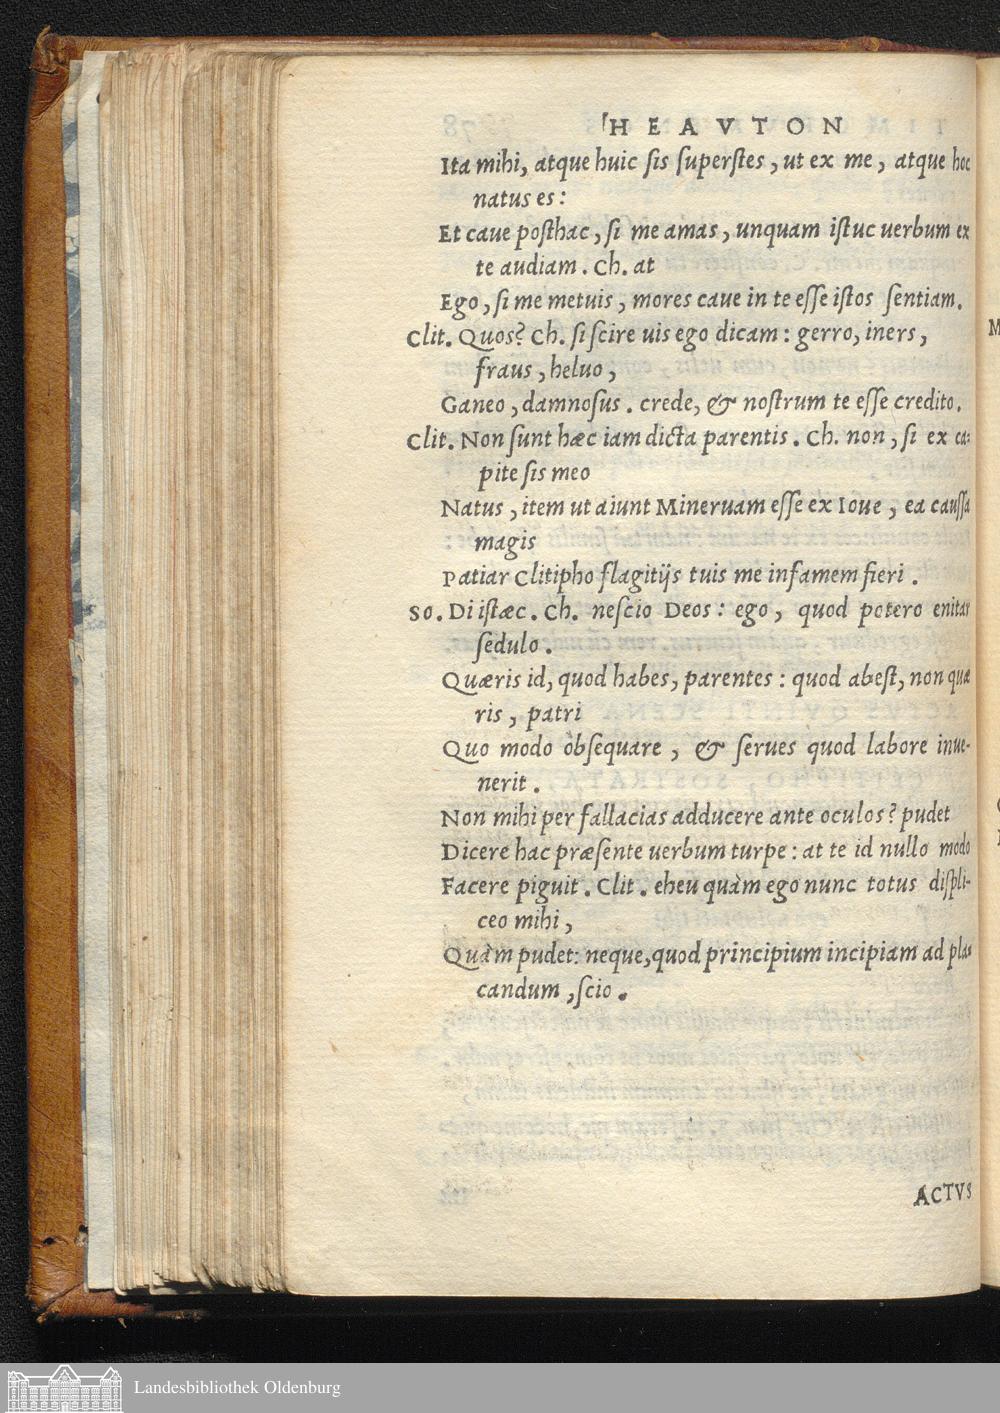 HEAVTON
Ita mihi, atque huic sis superstes, ut ex me, atque hoc
natus es:
Et caue posthac, si me amas, unquam istuc uerbum ex
te audiam. Ch. at
Ego, si me metuis, mores caue in te esse istos sentiam.
Clit. Quos? Ch. si scire uis ego dicam: gerro, iners,
fraus, heluo,
Ganeo, damnosus. crede, & nostrum te esse credito.
Clit. Non sunt hæc iam dicta parentis. Ch. non, si ex ca-
pite sis meo
Natus, item ut aiunt Mineruam esse ex Ioue, ea caussa
magis
Patiar Clitipho flagitijs tuis me infamem fieri.
So. Di istæc. Ch. nescio Deos: ego, quod potero enitar
sedulo.
Quæris id, quod habes, parentes: quod abest, non quæ
ris, patri
Quo modo obsequare, & serues quod labore inue-
nerit.
Non mihi per fallacias adducere ante oculos? pudet
Dicere hac præsente uerbum turpe: at te id nullo modo
Facere piguit. Clit. eheu quàm ego nunc totus displi-
ceo mihi,
Quàm pudet: neque, quod principium incipiam ad pla-
candum, scio.
ACTVS
Landesbibliothek Oldenburg